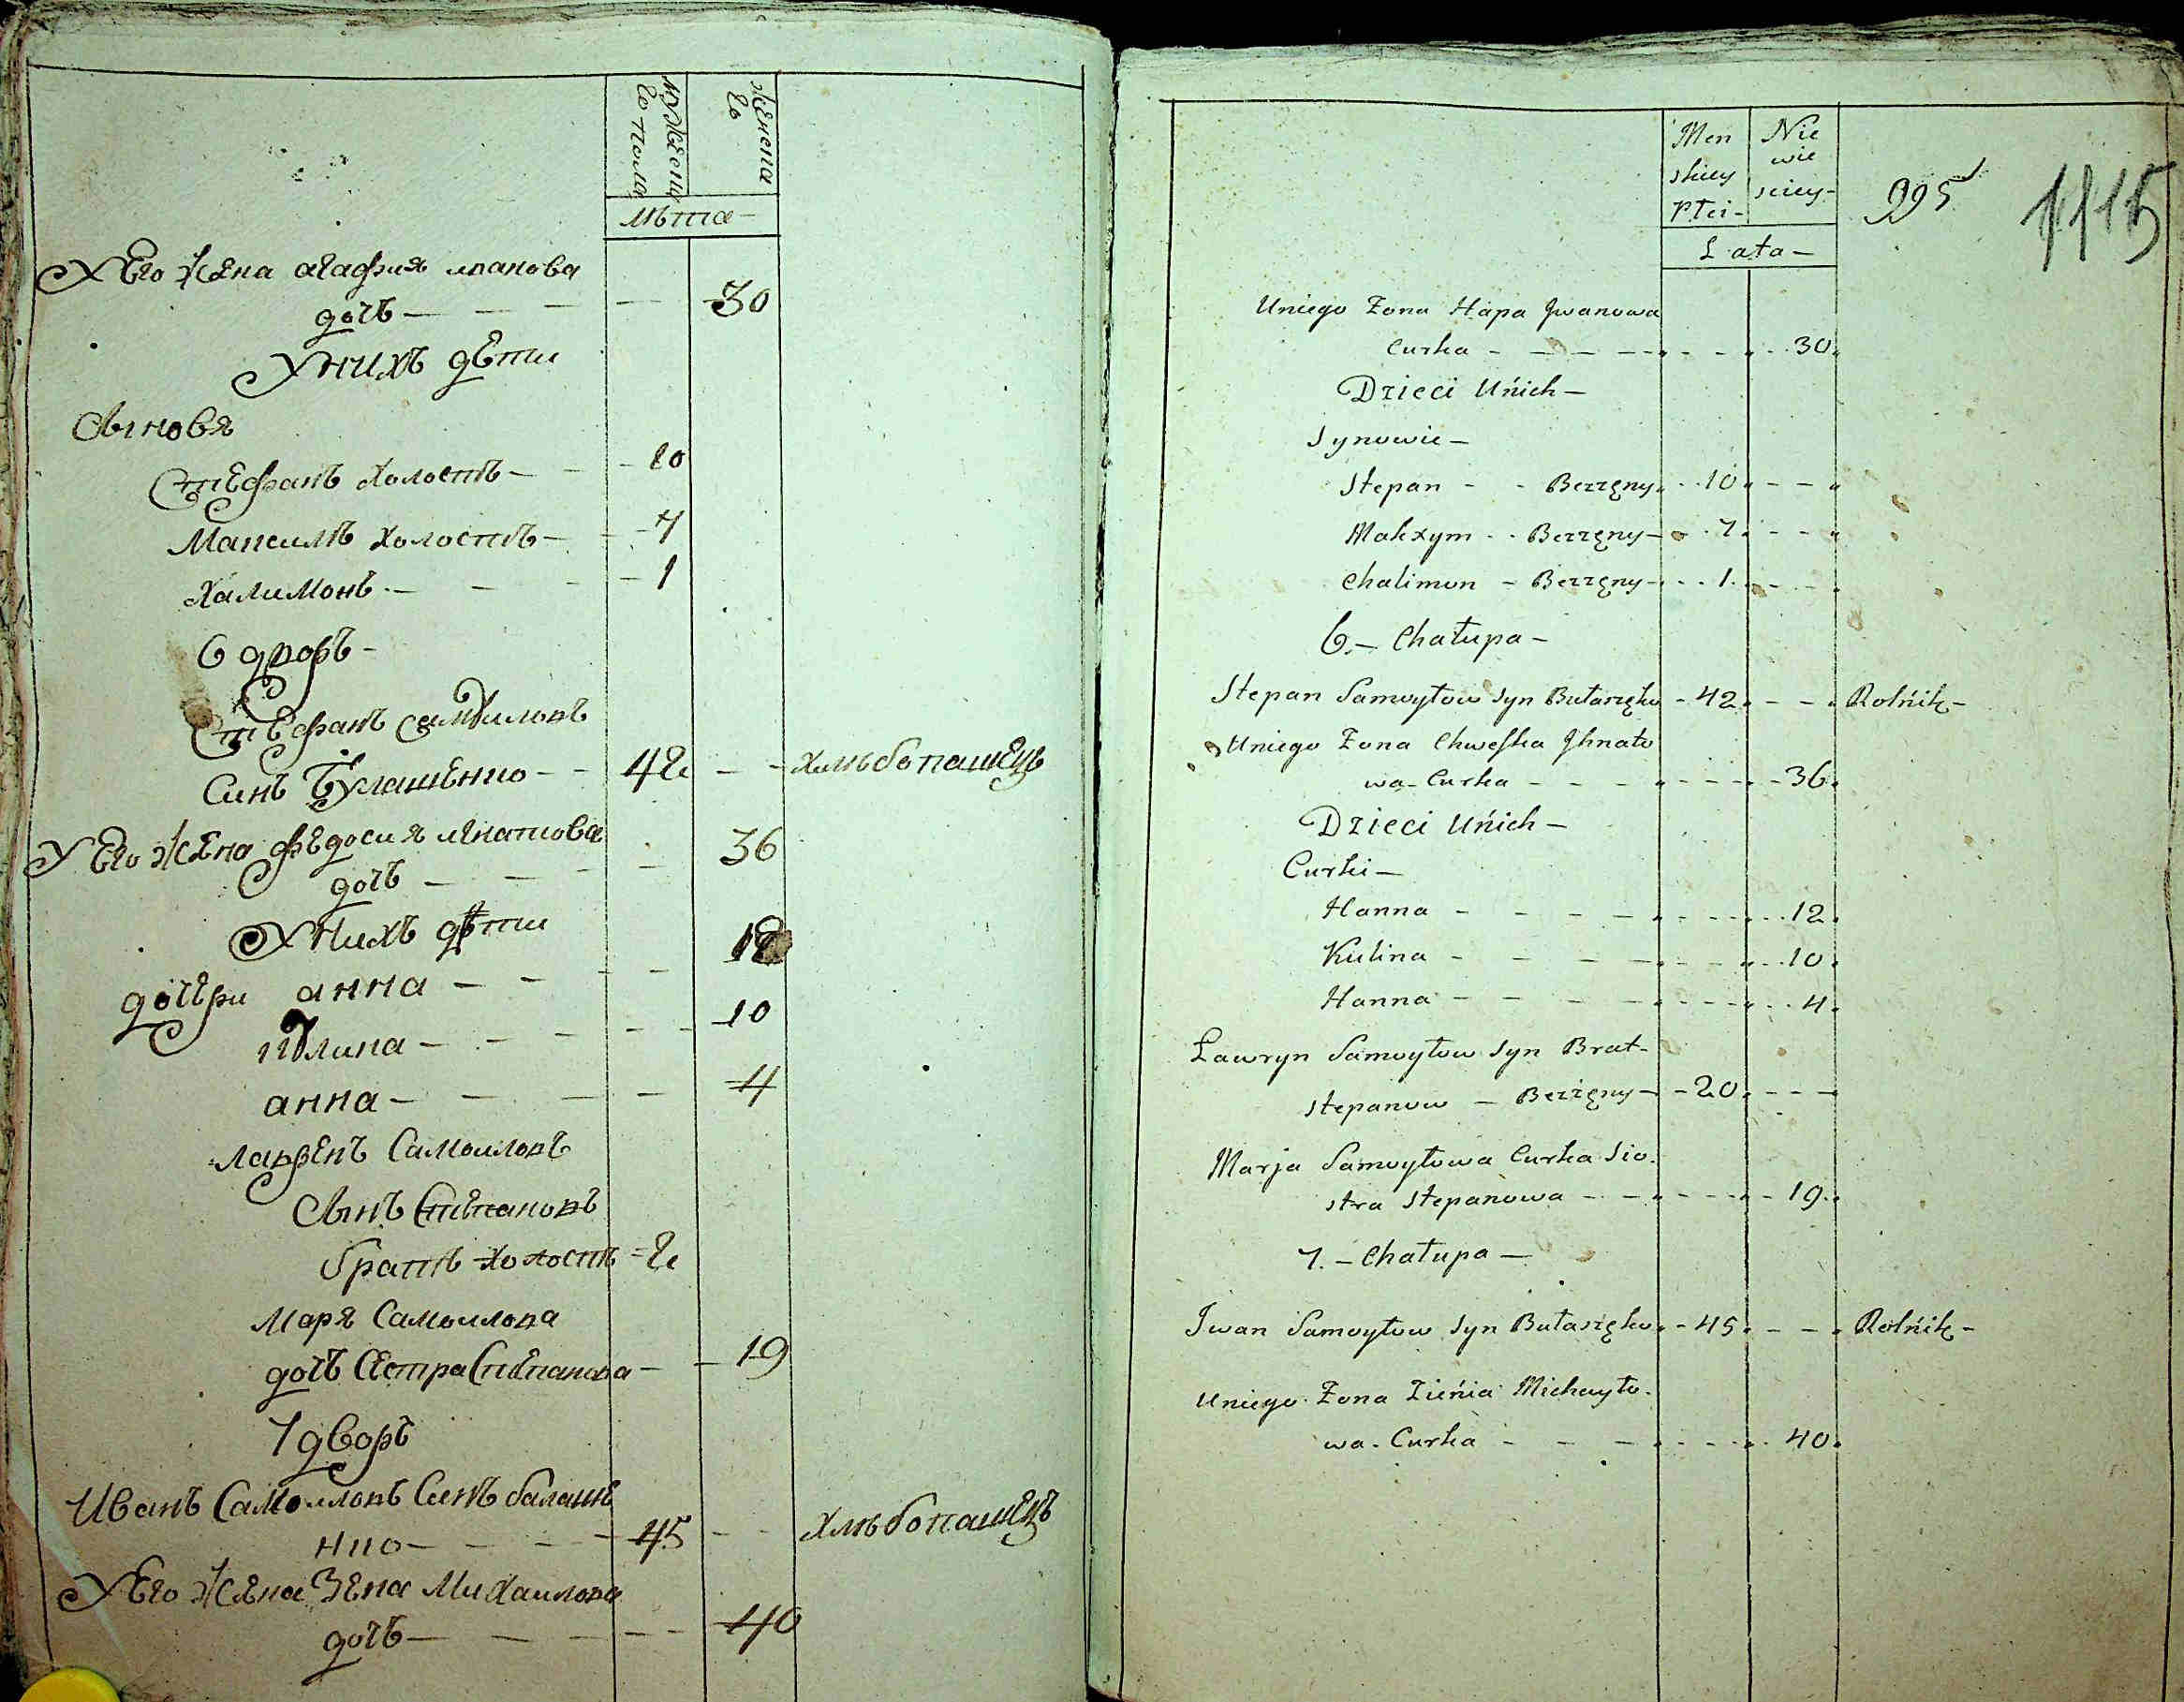 мужеска
го пола
женска
го
лѣта —
У Его жена агафия иванова
дочь — — — — 30
У нихъ дѣти
Сыновя
Стефанъ холостъ — — 10
Максимъ холостъ — — 7
Халимонъ — — — 1
6 дворъ —
Стефанъ Самуиловъ
Синъ Булашенко — — 42 — — хлѣбопашецъ
У Его жена федосия игнатова
дочь — — — — 36
У нихъ дѣти
дочери анна — — — — 12
Кулина — — — — — 10
анна — — — — 4
лаврѣнъ Самоиловъ
Сынъ Степановъ
братъ холостъ — 2
Маря Самоилова
дочь Сестра Степанова — — 19
7 дворъ
Иванъ Самоиловъ Синъ балаше
нко — — — — 45 — — хлѣбопашецъ
У Его жена Зена Михаилова
дочь — — — — — 40
Men
skiey
Płci —
Nie
wie
sciey —
Lata —
995
1115
Uniego Żona Hapa Jwanowa
Curka — — — — — — 30
Dzieci Unich —
Synowie —
Stepan - - Bezżęny - 10 - - -
Makxym - - Bezżęny - 7 - - -
Chalimon - Bezżęny - 1 - - -
6. — Chałupa —
Stepan Samoyłow Syn Bułaszęko - 42 - - - Rolnik —
Uniego Żona Chweska Jhnato
wa - Curka - - - - - - 36
Dzieci Unich —
Curki —
Hanna - - - - - - 12
Kulina - - - - - - 10
Hanna - - - - - - 4
Ławryn Samoyłow Syn Brat -
Stepanow — Bezżęny - 20 - - -
Marja Samoyłowa Curka Sio -
stra Stepanowa - - - - - 19
7. — Chałupa —
Iwan Samoyłow Syn Bułaszęko - 45 - - - Rolnik —
Uniego Żona Zienia Michayło -
wa - Curka - - - - - - 40